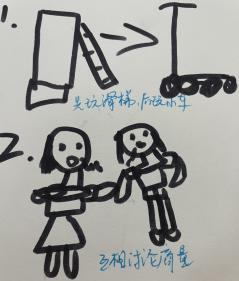 1.
先玩滑梯,后玩小车
2.
互相讨论商量